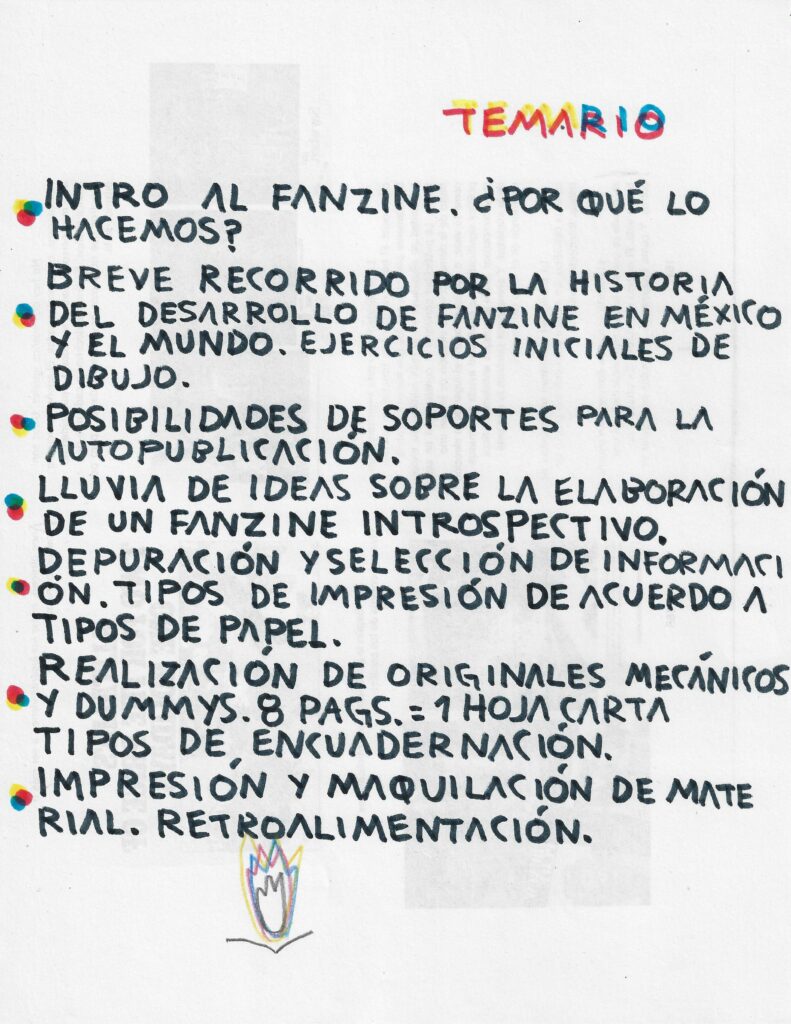 TEMARIO
INTRO AL FANZINE. ¿POR QUÉ LO
HACEMOS?
BREVE RECORRIDO POR LA HISTORIA
DEL DESARROLLO DE FANZINE EN MÉXICO
Y EL MUNDO. EJERCICIOS INICIALES DE
DIBUJO.
POSIBILIDADES DE SOPORTES PARA LA
AUTOPUBLICACIÓN.
LLUVIA DE IDEAS SOBRE LA ELABORACIÓN
DE UN FANZINE INTROSPECTIVO.
DEPURACIÓN Y SELECCIÓN DE INFORMACI
ÓN. TIPOS DE IMPRESIÓN DE ACUERDO A
TIPOS DE PAPEL.
REALIZACIÓN DE ORIGINALES MECÁNICOS
Y DUMMYS. 8 PAGS. = 1 HOJA CARTA
TIPOS DE ENCUADERNACIÓN.
IMPRESIÓN Y MAQUILACIÓN DE MATE
RIAL. RETROALIMENTACIÓN.